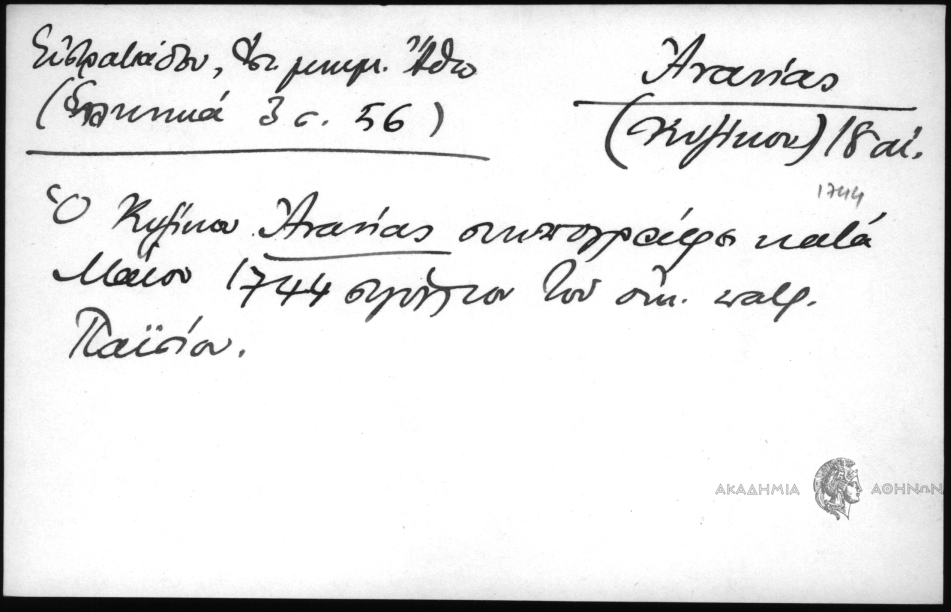 Εὐστρατιάδου, Ἱστ. μνημ. Ἄθω
(Ἑλληνικά 3 σ. 56)
Ἀνανίας
(Κυζίκου) 18 αἰ.
1744
Ὁ Κυζίκου Ἀνανίας συνυπογράφει κατά
Μάϊον 1744 σιγίλλιον τοῦ οἰκ. πατρ.
Παϊσίου.
ΑΚΑΔΗΜΙΑ ΑΘΗΝΩΝ